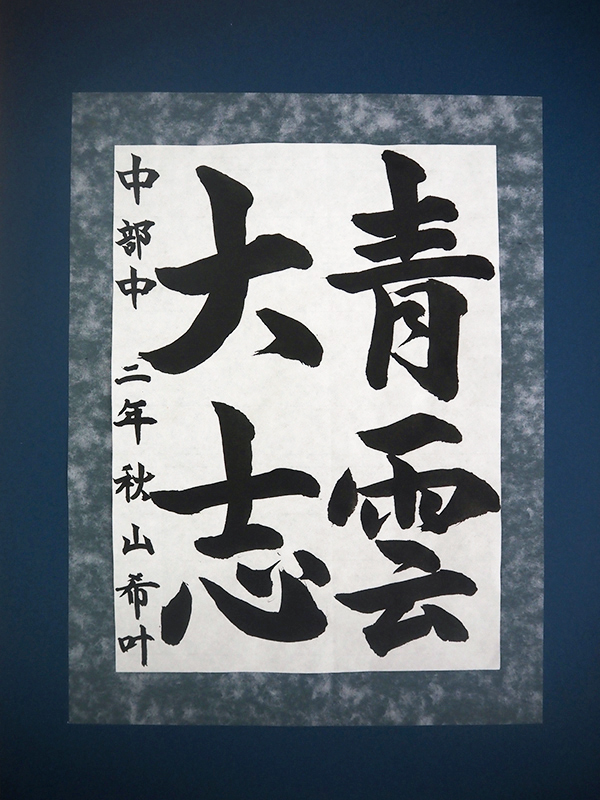 青雲
大志
中部中 二年 秋山希叶